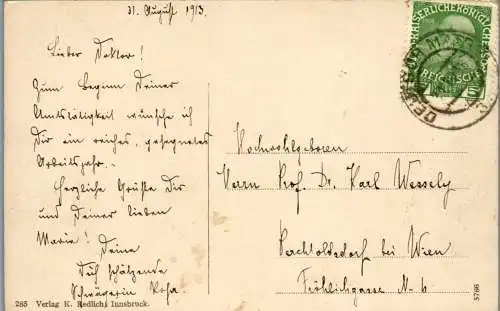 31. August 1913.
Lieber Doktor!
Zum Beginn Deiner
Amtstätigkeit wünsche ich
Dir ein reiches, gesegnetes
Arbeitsjahr.
Herzliche Grüße Dir
und Deiner lieben
Marie! Deine
Dich schätzende
Schwägerin Rosa.
Hochwohlgeboren
Herrn Prof. Dr. Karl Wessely
Perchtoldsdorf bei Wien
Fröhlichgasse N- 6
285 Verlag K. Redlich, Innsbruck.
5786